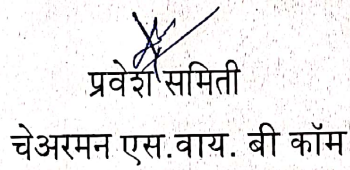 प्रवेश समिती
चेअरमन एस.वाय. बी कॉम